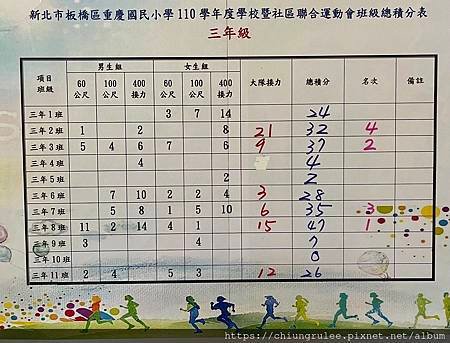 新北市板橋區重慶國民小學 110 學年度學校暨社區聯合運動會班級總積分表
三年級
項目 班級 男生組 女生組 大隊接力 總積分 名次 備註
60公尺 100公尺 400接力 60公尺 100公尺 400接力
三年 1 班 3 7 14 24
三年 2 班 1 2 8 21 32 4
三年 3 班 5 4 6 7 6 9 37 2
三年 4 班 4 4
三年 5 班 2 2
三年 6 班 7 10 2 2 4 3 28
三年 7 班 5 8 1 5 10 6 35 3
三年 8 班 11 2 14 4 1 15 47 1
三年 9 班 3 4 7
三年 10 班 0
三年 11 班 2 4 5 3 12 26
https://chiungrulee.pixnet.net/album